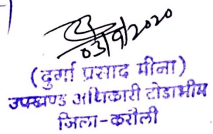 03/9/2020
(दुर्गा प्रसाद मीना)
उपखण्ड अधिकारी टोडाभीम
जिला-करौली